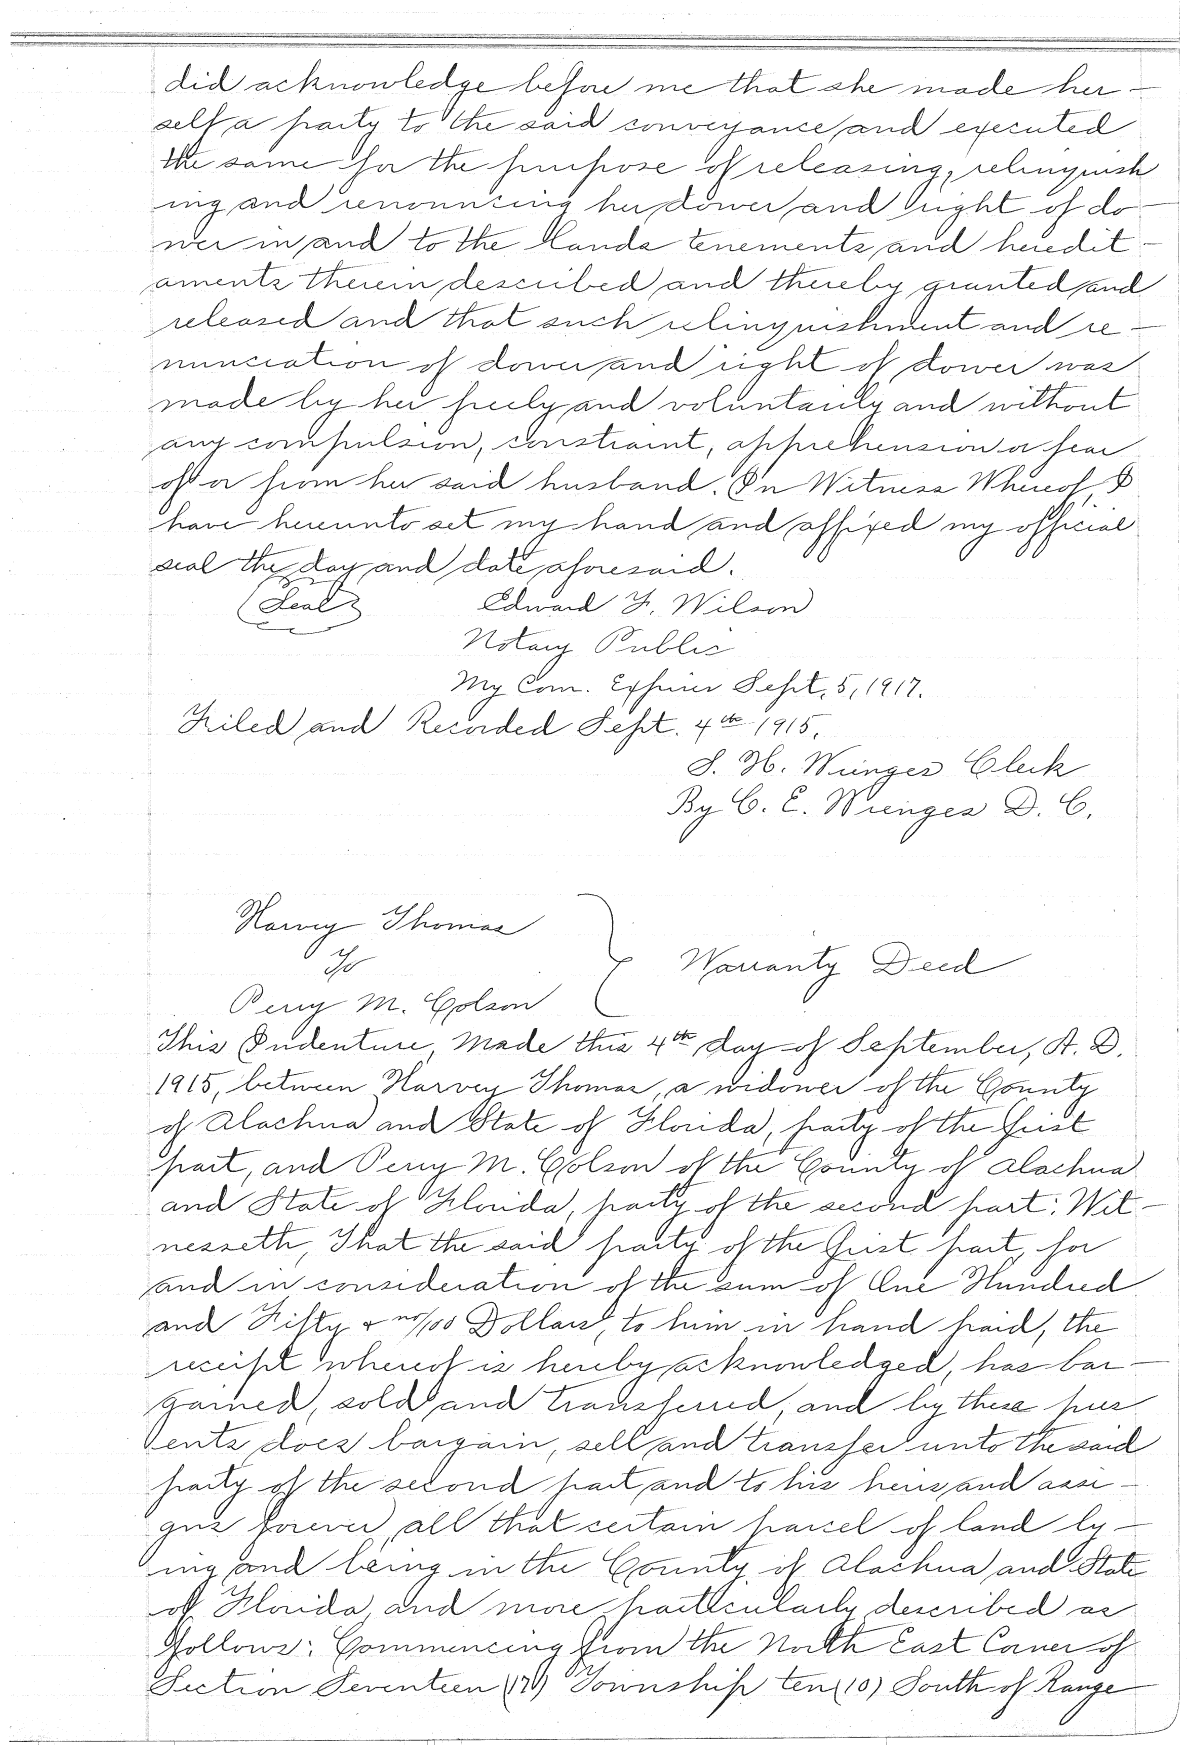 did acknowledge before me that she made her-
self a party to the said conveyance and executed
the same for the purpose of releasing, relinquish
ing and renouncing her dower and right of do-
wer in and to the lands tenements and heredit-
aments therein described and thereby granted and
released and that such relinquishment and re-
nunciation of dower and right of dower was
made by her freely and voluntarily and without
any compulsion, constraint, apprehension or fear
of or from her said husband. In Witness Whereof, I
have hereunto set my hand and affixed my official
seal the day and date aforesaid.
(Seal) Edward F. Wilson
Notary Public
My Com. Expires Sept. 5, 1917.
Filed and Recorded Sept. 4th 1915.
S. H. Wienges Clerk
By C. E. Wienges D. C.
Harvey Thomas
To
Warranty Deed
Perry M. Colson
This Indenture, Made this 4th day of September, A. D.
1915, between Harvey Thomas, a widower of the County
of Alachua and State of Florida, party of the first
part, and Perry M. Colson of the County of Alachua
and State of Florida, party of the second part: Wit-
nesseth, That the said party of the first part, for
and in consideration of the sum of One Hundred
and Fifty & no/100 Dollars, to him in hand paid, the
receipt whereof is hereby acknowledged, has bar-
gained, sold and transferred, and by these pres
ents does bargain, sell and transfer unto the said
party of the second part and to his heirs and assi-
gns forever all that certain parcel of land ly-
ing and being in the County of Alachua and State
of Florida, and more particularly described as
follows: Commencing from the North East Corner of
Section Seventeen (17) Township ten (10) South of Range